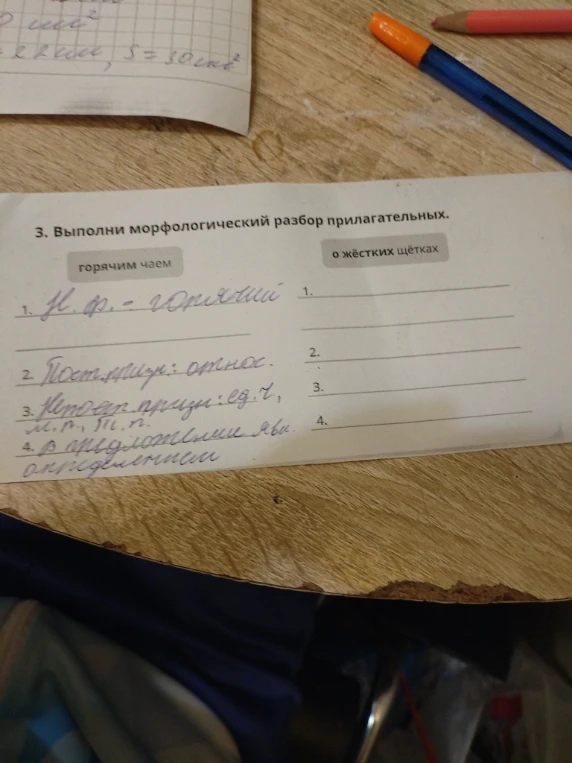 см²
S = 30 см²
3. Выполни морфологический разбор прилагательных.
горячим чаем
1. Н. ф. - горячий
2. Пост. призн.: относ.
3. Непост. призн.: ед. ч,
м. р., Т. п.
4. В предложении явл.
определением
о жёстких щётках
1.
2.
3.
4.